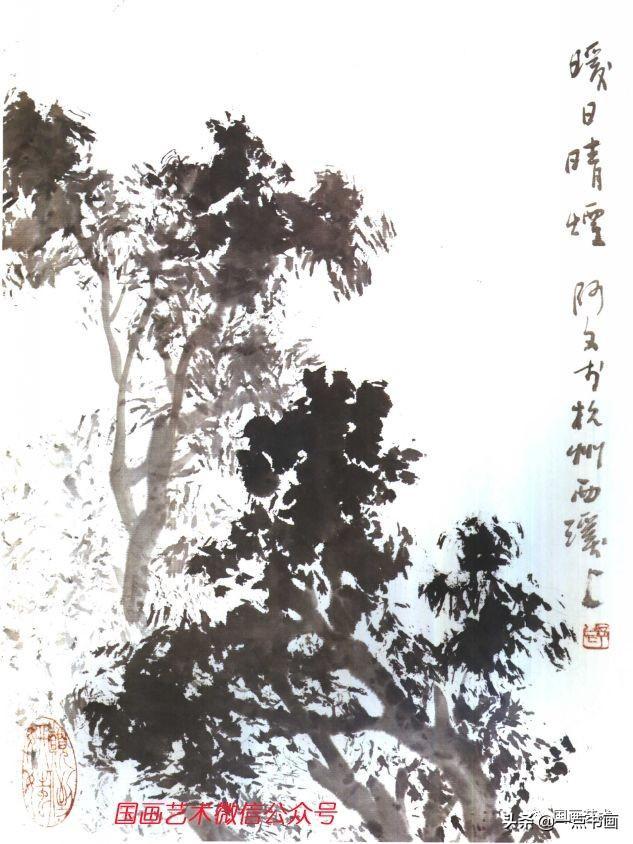 暖日晴煙 阿文於杭州西溪上
国画艺术微信公众号
头条 @一点书画